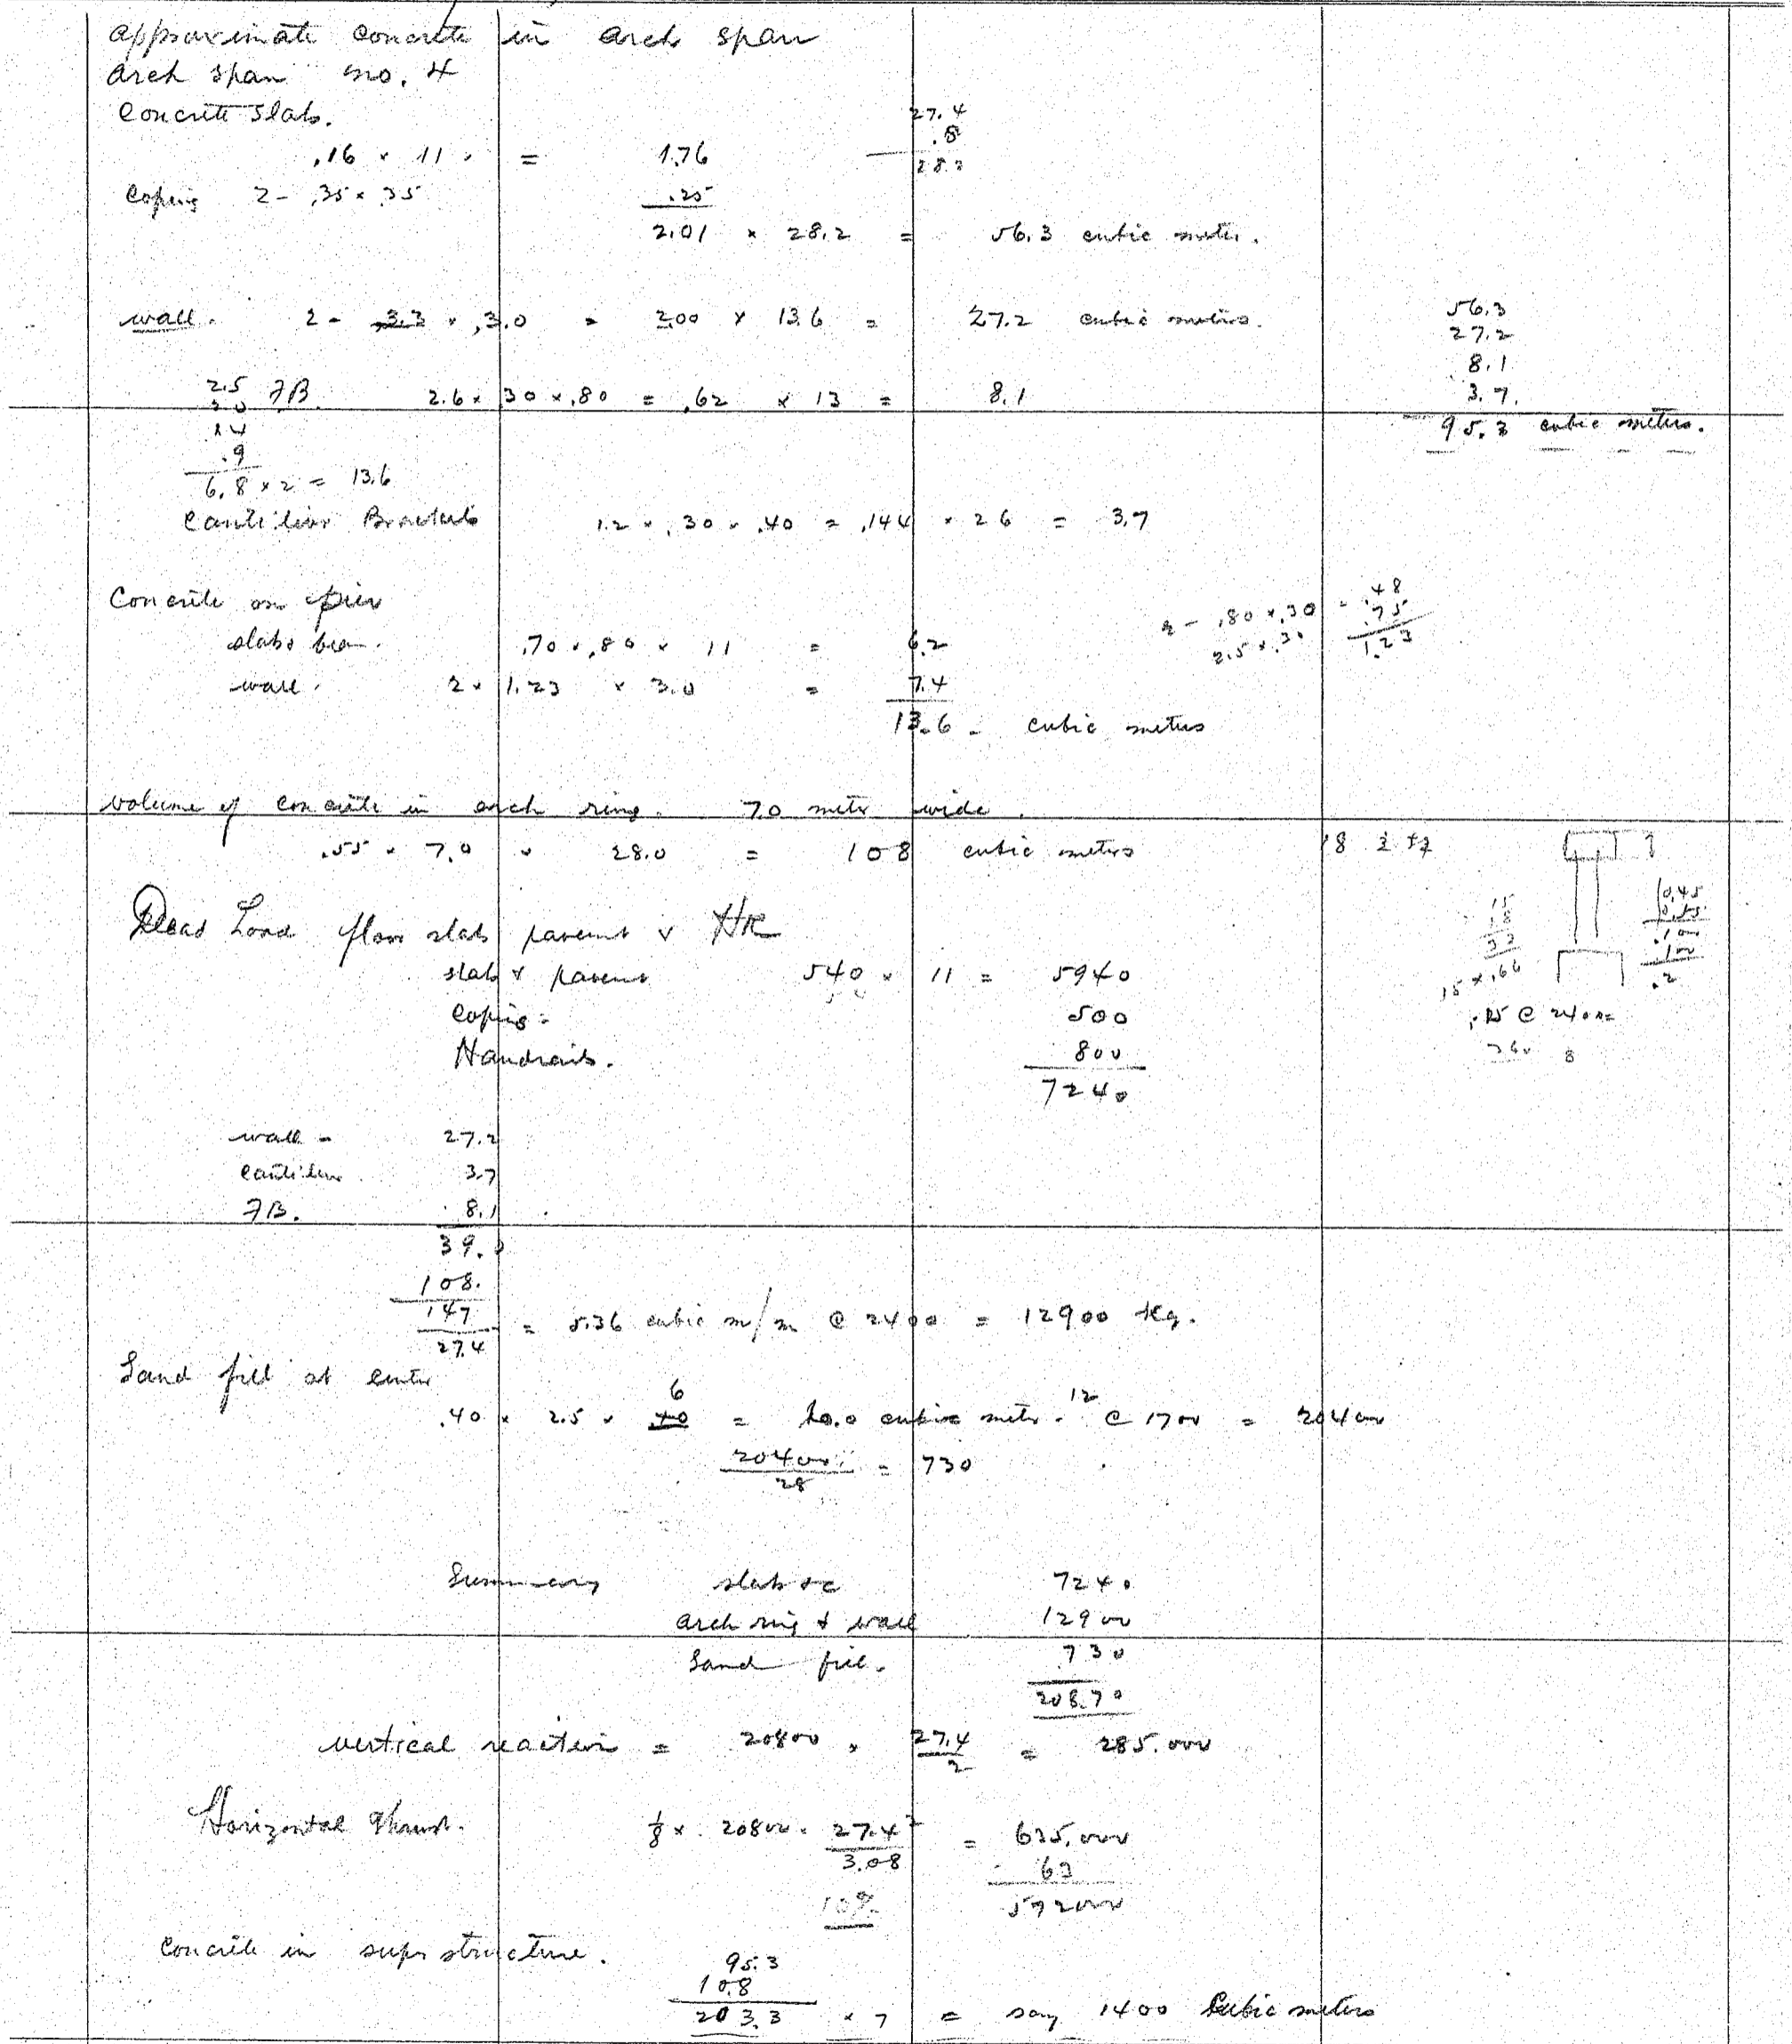 approximate concrete in arch span
arch span no. 4
Concrete slab.
27.4
.8
28.2
.16 × 11 = 1.76
Coping 2 - .35 × .35 .25
2.01 × 28.2 = 56.3 cubic meter.
wall. 2 - 3.3 × .30 = 2.00 × 13.6 = 27.2 cubic meters.
56.3
27.2
8.1
3.7
95.3 cubic meters.
2.5 FB. 2.6 × .30 × .80 = .62 × 13 = 8.1
2.0
1.4
.9
6.8 × 2 = 13.6
Cantilever Brackets 1.2 × .30 × .40 = .144 × 26 = 3.7
Concrete on pier
2 - .80 × .30 = .48
2.5 × .30 .75
1.23
slabs beam. .70 × .80 × 11 = 6.2
wall. 2 × 1.23 × 3.0 = 7.4
13.6 - cubic meters
Volume of concrete in arch ring. 7.0 meter wide.
.55 × 7.0 × 28.0 = 108 cubic meters
Dead Load floor slab pavement & HR
slab & pavement 540 × 11 = 5940
Coping = 500
Handrails. 800
7240
.15 @ 2400 =
360
wall - 27.2
cantilever 3.7
FB. 8.1
39.0
108.
147
27.4
= 5.36 cubic m/m @ 2400 = 12900 Kg.
Sand fill at center
.40 × 2.5 × 40 6 = 40.0 cubic meter. 12 @ 1700 = 20400
20400
28
= 730
Summary slab &c 7240
arch ring & wall 12900
Sand fill. 730
20870
vertical reaction = 20800 × 27.4/2 = 285.000
Horizontal Thrust. 1/8 × 20800 × 27.4²/3.08 = 635,000
63
572000
10%
Concrete in super structure. 95.3
108
203.3 × 7 = say 1400 Cubic meters